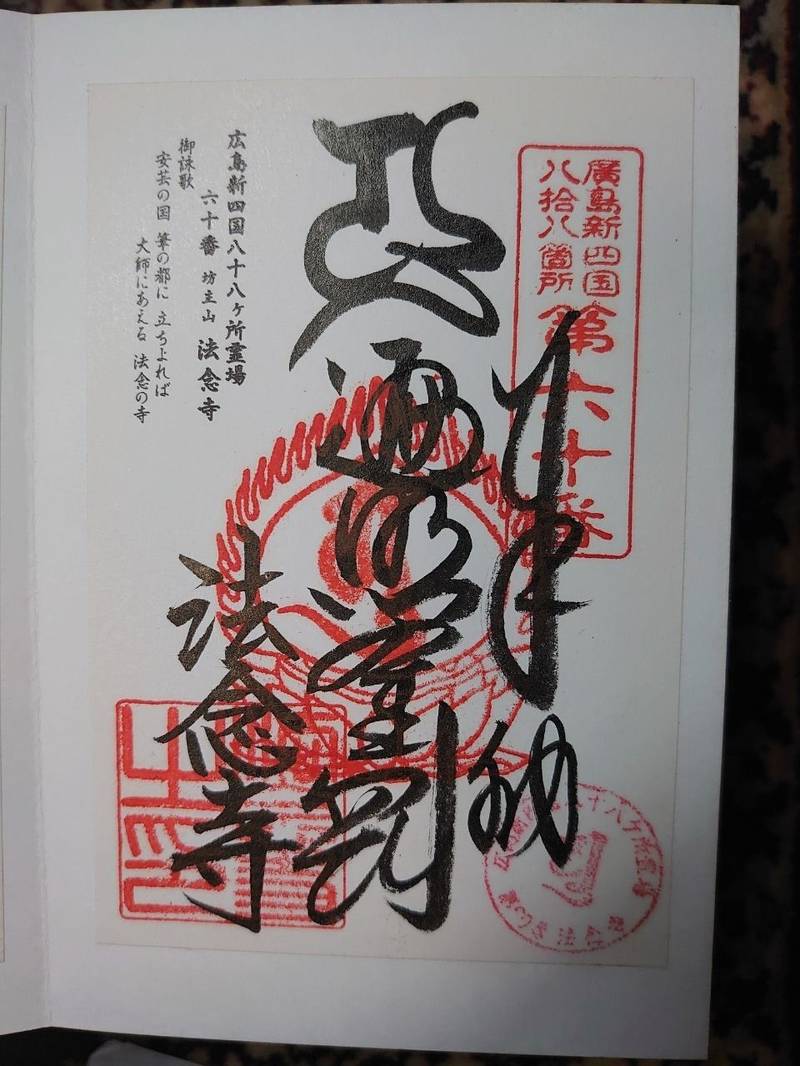 廣島新四国
八拾八箇所
第六十番
奉納
遍照金剛
法念寺
広島新四国八十八ヶ所霊場
六十番 坊主山 法念寺
御詠歌
安芸の国 筆の都に 立ちよれば
大師にあえる 法念の寺
八十八ヶ所霊場